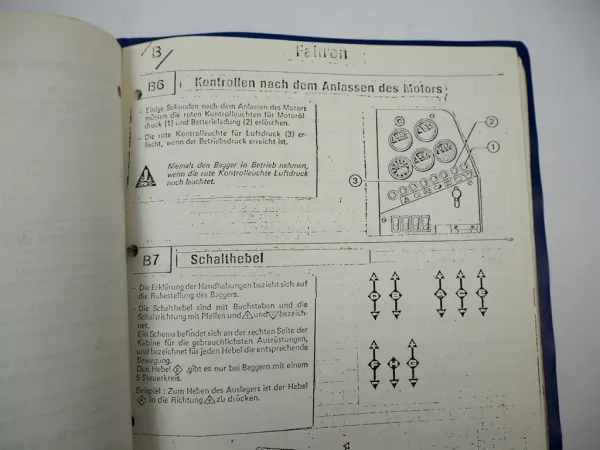 B/
Fahren
B6
Kontrollen nach dem Anlassen des Motors
- Einige Sekunden nach dem Anlassen des Motors
müssen die roten Kontrolleuchten für Motoröl-
druck (1) und Batterieladung (2) erlöschen.
- Die rote Kontrolleuchte für Luftdruck (3) er-
lischt, wenn der Betriebsdruck erreicht ist.
Niemals den Bagger in Betrieb nehmen,
wenn die rote Kontrolleuchte Luftdruck
noch leuchtet.
2
1
3
B7
Schalthebel
- Die Erklärung der Handhabungen bezieht sich auf
die Ruhestellung des Baggers.
- Die Schalthebel sind mit Buchstaben und die
Schaltrichtung mit Pfeilen und und bezeich-
net.
Ein Schema befindet sich an der rechten Seite der
Kabine für die gebrauchlichsten Ausrüstungen,
und bezeichnet für jeden Hebel die entsprechende
Bewegung.
Den Hebel E gibt es nur bei Baggern mit einem
5 Steuerkreis.
Beispiel : Zum Heben des Auslegers ist der Hebel
in die Richtung zu drücken.